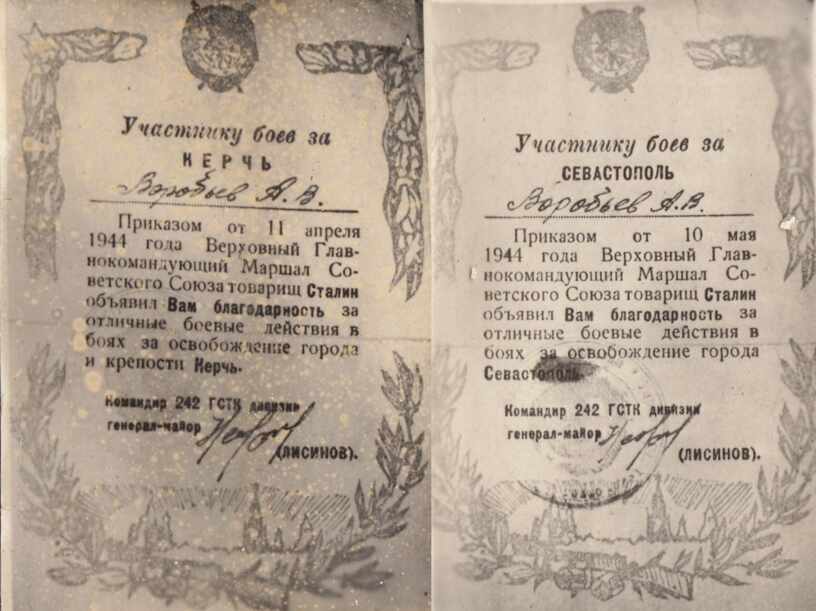 Участнику боев за
КЕРЧЬ
Воробьев А.В.
Приказом от 11 апреля
1944 года Верховный Глав-
нокомандующий Маршал Со-
ветского Союза товарищ Сталин
объявил Вам благодарность за
отличные боевые действия в
боях за освобождение города
и крепости Керчь.
Командир 242 ГСТК дивизии
генерал-майор
(ЛИСИНОВ).
Участнику боев за
СЕВАСТОПОЛЬ
Воробьев А.В.
Приказом от 10 мая
1944 года Верховный Глав-
нокомандующий Маршал Со-
ветского Союза товарищ Сталин
объявил Вам благодарность за
отличные боевые действия в
боях за освобождение города
Севастополь.
Командир 242 ГСТК дивизии
генерал-майор
(ЛИСИНОВ).